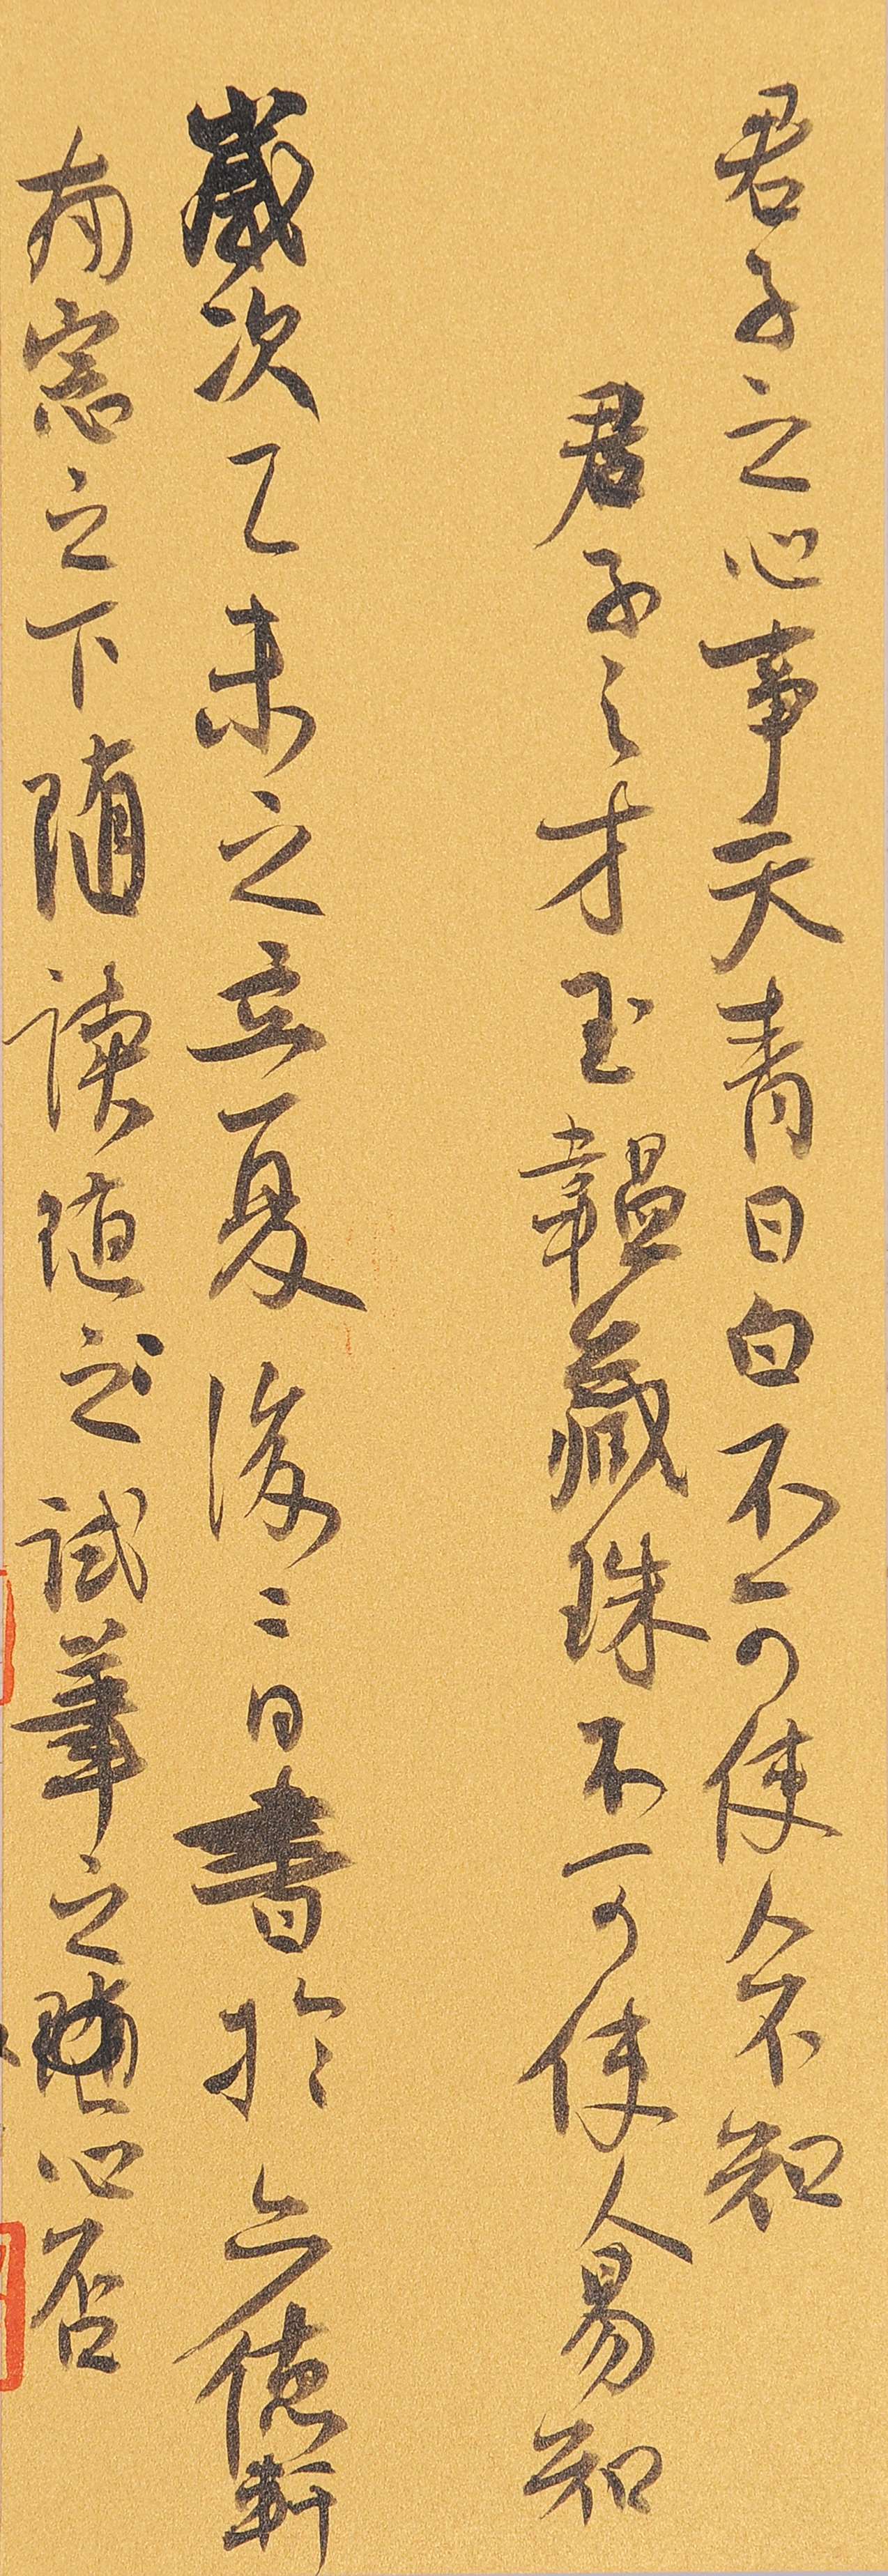 君子之心事天青日白不可使人不知
君子之才玉韞藏珠不可使人易知
歲次乙未之立夏後二日書於六德軒
南窓之下隨讀隨書試筆之隨心否